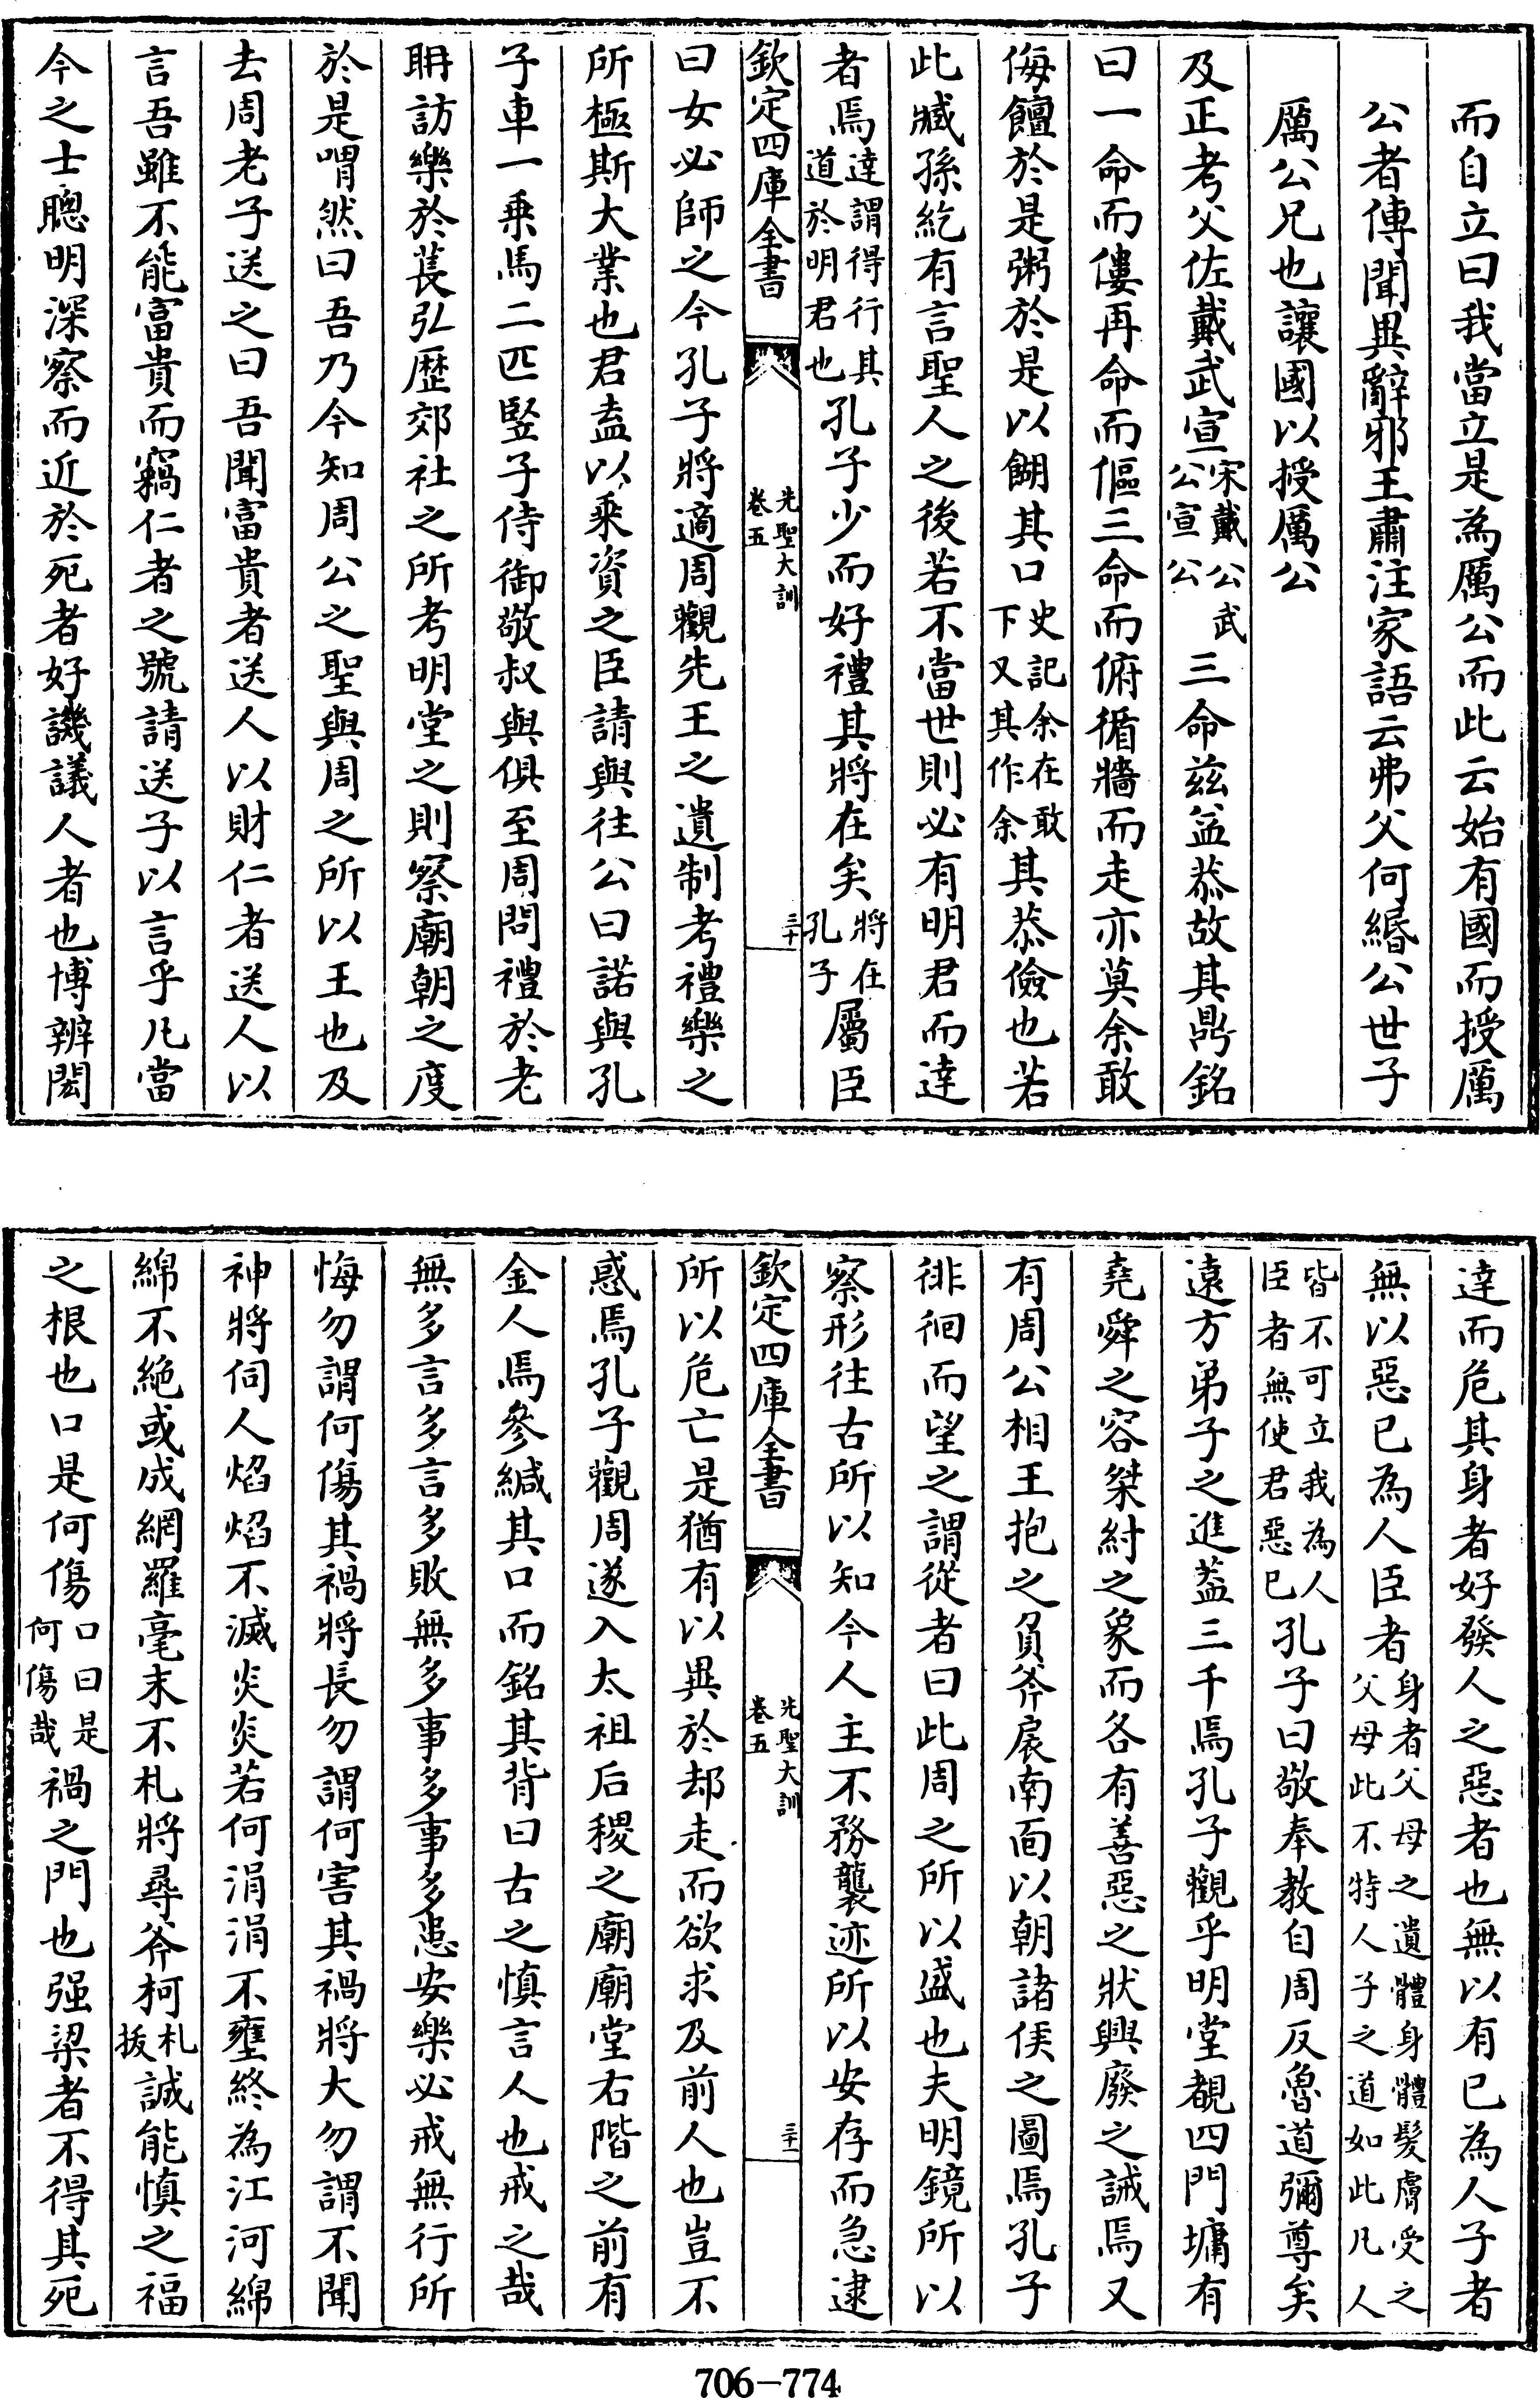 而自立曰我當立是為厲公而此云始有國而授厲
公者傳聞異辭邪王肅注家語云弗父何緡公世子
厲公兄也讓國以授厲公
及正考父佐戴武宣宋戴公武公宣公三命兹益恭故其鼎銘
曰一命而僂再命而傴三命而俯循牆而走亦莫余敢
侮饘於是粥於是以餬其口史記余在敢下又其作余其恭儉也若
此臧孫紇有言聖人之後若不當世則必有明君而達
者焉達謂得行其道於明君也孔子少而好禮其將在矣將在孔子屬臣
欽定四庫全書 先聖大訓 卷五 三十
曰女必師之今孔子將適周觀先王之遺制考禮樂之
所極斯大業也君盍以乘資之臣請與往公曰諾與孔
子車一乘馬二匹竪子侍御敬叔與俱至周問禮於老
聃訪樂於萇弘歷郊社之所考明堂之則察廟朝之度
於是喟然曰吾乃今知周公之聖與周之所以王也及
去周老子送之曰吾聞富貴者送人以財仁者送人以
言吾雖不能富貴而竊仁者之號請送子以言乎凡當
今之士聰明深察而近於死者好譏議人者也博辨閎
達而危其身者好發人之惡者也無以有已為人子者
無以惡已為人臣者身者父母之遺體身體髮膚受之父母此不特人子之道如此凡人
皆不可立我為人臣者無使君惡已孔子曰敬奉教自周反魯道彌尊矣
遠方弟子之進蓋三千焉孔子觀乎明堂覩四門墉有
堯舜之容桀紂之象而各有善惡之狀興廢之誡焉又
有周公相王抱之負斧扆南面以朝諸侯之圖焉孔子
徘徊而望之謂從者曰此周之所以盛也夫明鏡所以
察形往古所以知今人主不務襲迹所以安存而急逮
欽定四庫全書 先聖大訓 卷五 三十一
所以危亡是猶有以異於却走而欲求及前人也豈不
惑焉孔子觀周遂入太祖后稷之廟廟堂右階之前有
金人焉參緘其口而銘其背曰古之慎言人也戒之哉
無多言多言多敗無多事多事多患安樂必戒無行所
悔勿謂何傷其禍將長勿謂何害其禍將大勿謂不聞
神將伺人焰焰不滅炎炎若何涓涓不壅終為江河綿
綿不絶或成網羅毫末不札將尋斧柯札拔誠能慎之福
之根也口是何傷口曰是何傷哉禍之門也强梁者不得其死
706-774